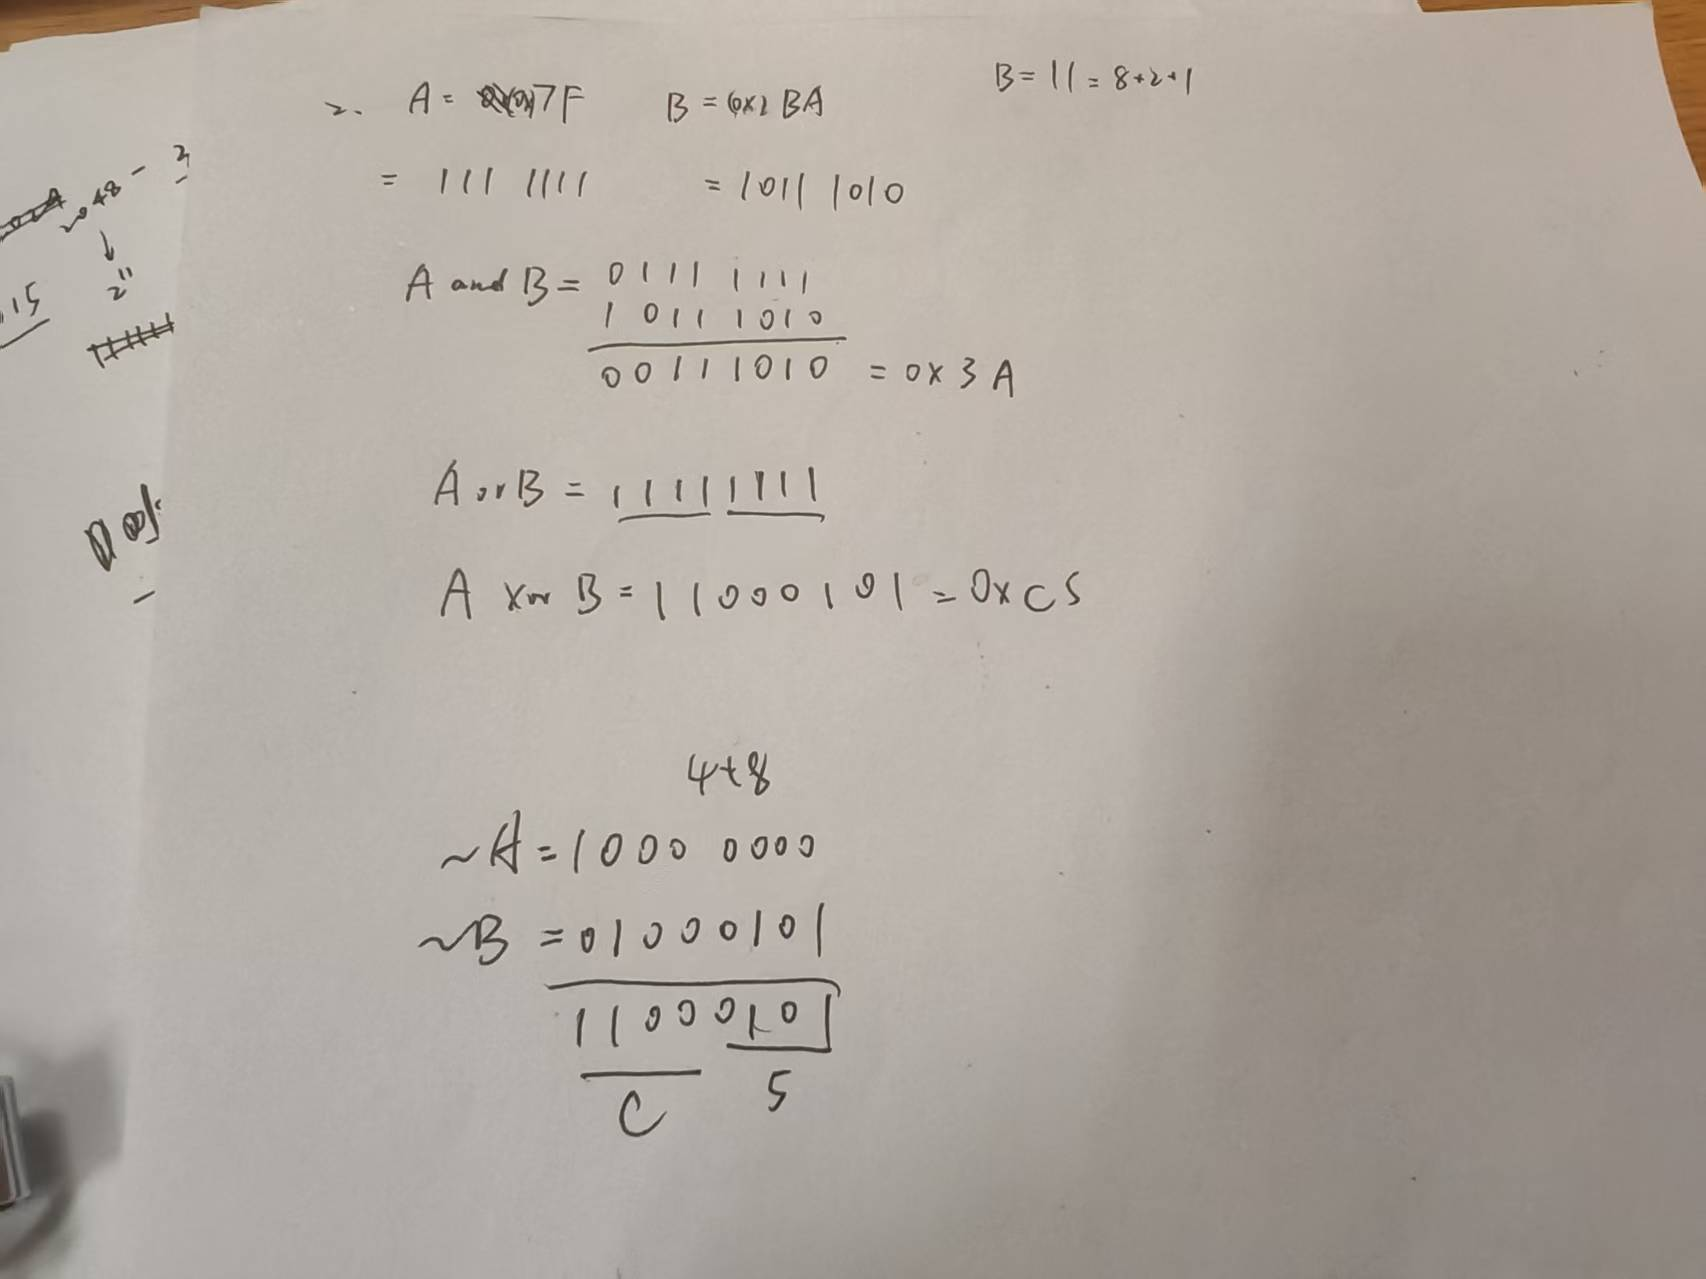 2. A = 7F B = (0x) BA B = 11 = 8+2+1
= 111 1111 = 1011 1010
A and B = 0111 1111
1 0111010
00111010 = 0x3A
A or B = 11111111
A xor B = 11000101 = 0xC5
4+8
~A = 1000 0000
~B = 01000101
11000101
C 5
48 - 3
↓
2^11
.15